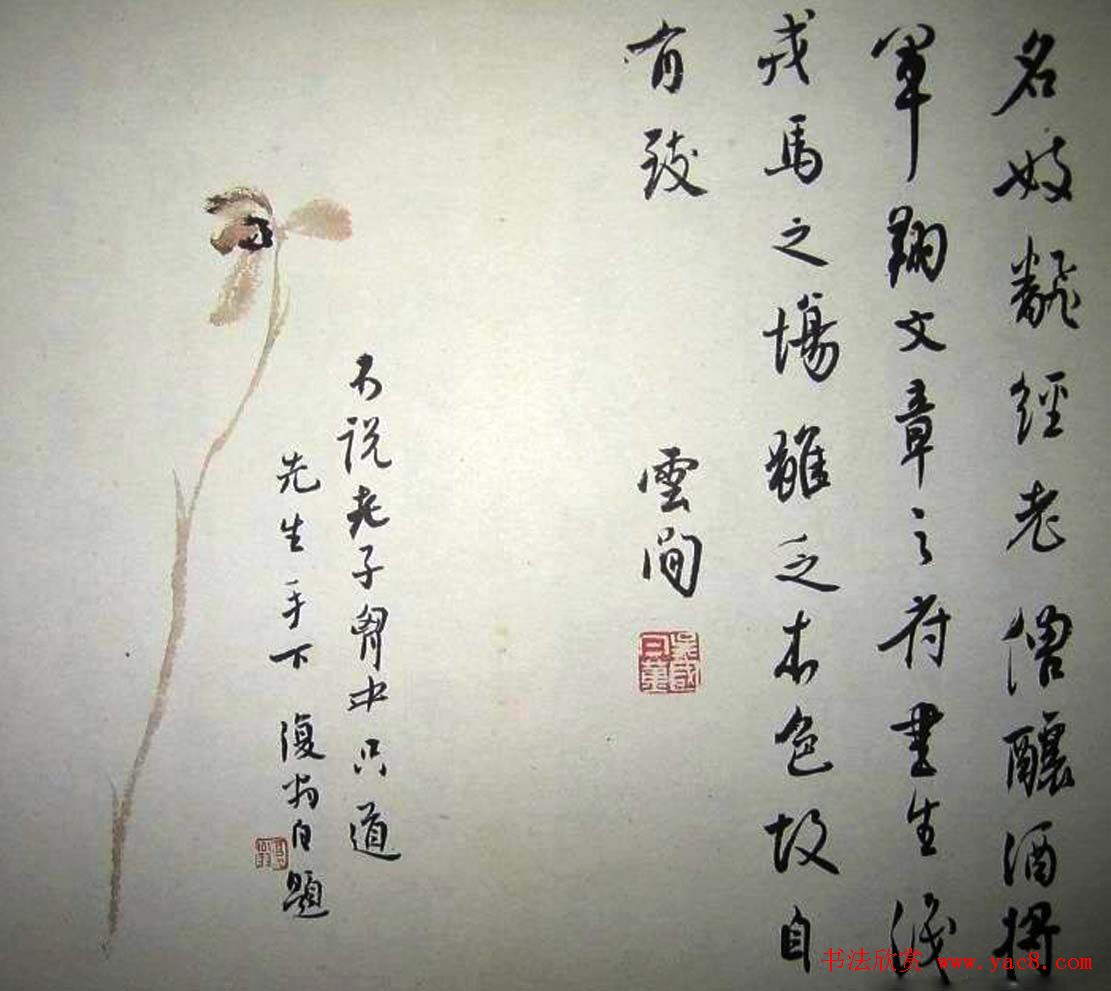 名妓翻經老僧釀酒將
軍翔文章之府書生踐
戎馬之場雖乏本色故自
有致
雲間
不说老子胷中只道
先生手下
自題
书法欣赏 www.yac8.com